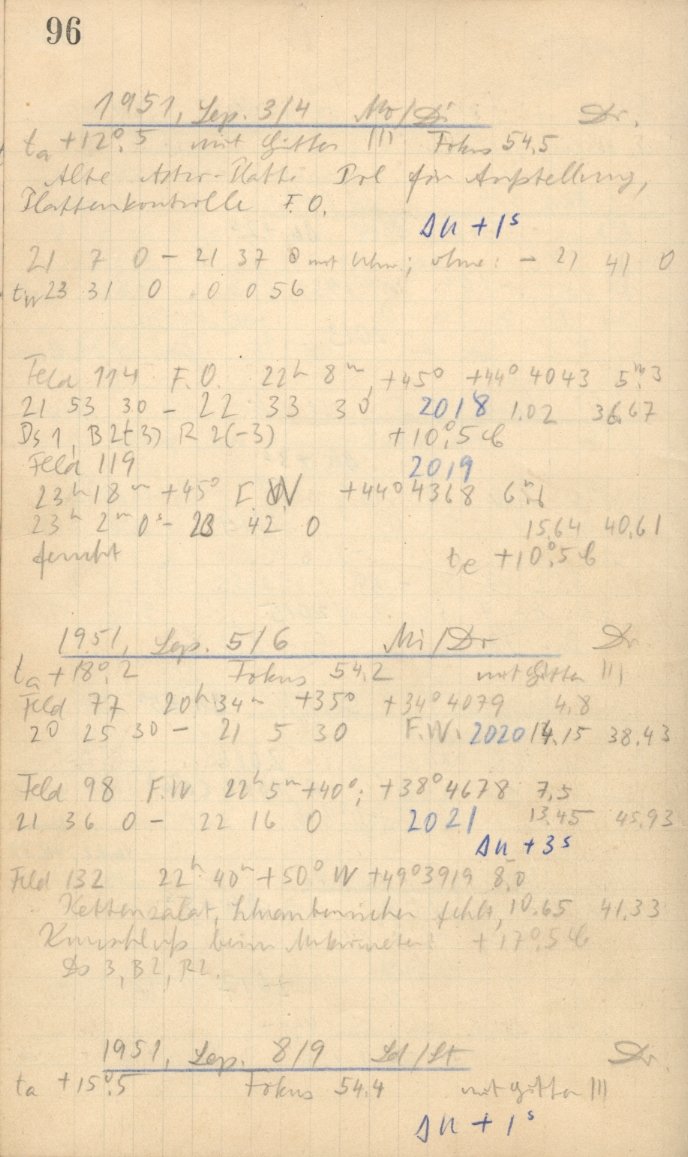 96
1951, Sep. 3/4 Mo/Di Dr.
ta +12°,5 mit Gitter III Fokus 54,5
Alte Astro-Platte Pol für Aufstellung,
Plattenkontrolle F.O.
Δu + 1s
21 7 0 – 21 37 0 mit Uhr; ohne: – 21 41 0
23 31 0 0 0 56
Feld 114 F.O. 22h 8m, +45° +44° 4043 5m,3
21 53 30 – 22 33 30 2018 1.02 36,67
Ds 1, B 2(-3) R 2(-3) +10°,5
Feld 119 2019
23h 18m +45° F.W +44° 4368 6m,6
23h 2m 0s – 23 42 0 15,64 40,61
feucht te +10°,5
1951, Sep. 5/6 Mi/Do Dr.
ta +18°,2 Fokus 54,2 mit Gitter III
Feld 77 20h 34m +35° +34° 4079 4,8
20 25 30 – 21 5 30 F.W. 2020 14.15 38.43
Feld 98 F.W 22h 5m +40°; +38° 4678 7,5
21 36 0 – 22 16 0 2021 13.45 45,93
Δu + 3s
Feld 132 22h 40m +50° W +49° 3919 8,0
Kettensalat, fehlt, 10.65 41,33
beim +17°,5
Ds 3, B2, R2.
1951, Sep. 8/9 Sd/St Dr.
ta +15°,5 Fokus 54.4 mit Gitter III
Δu + 1s